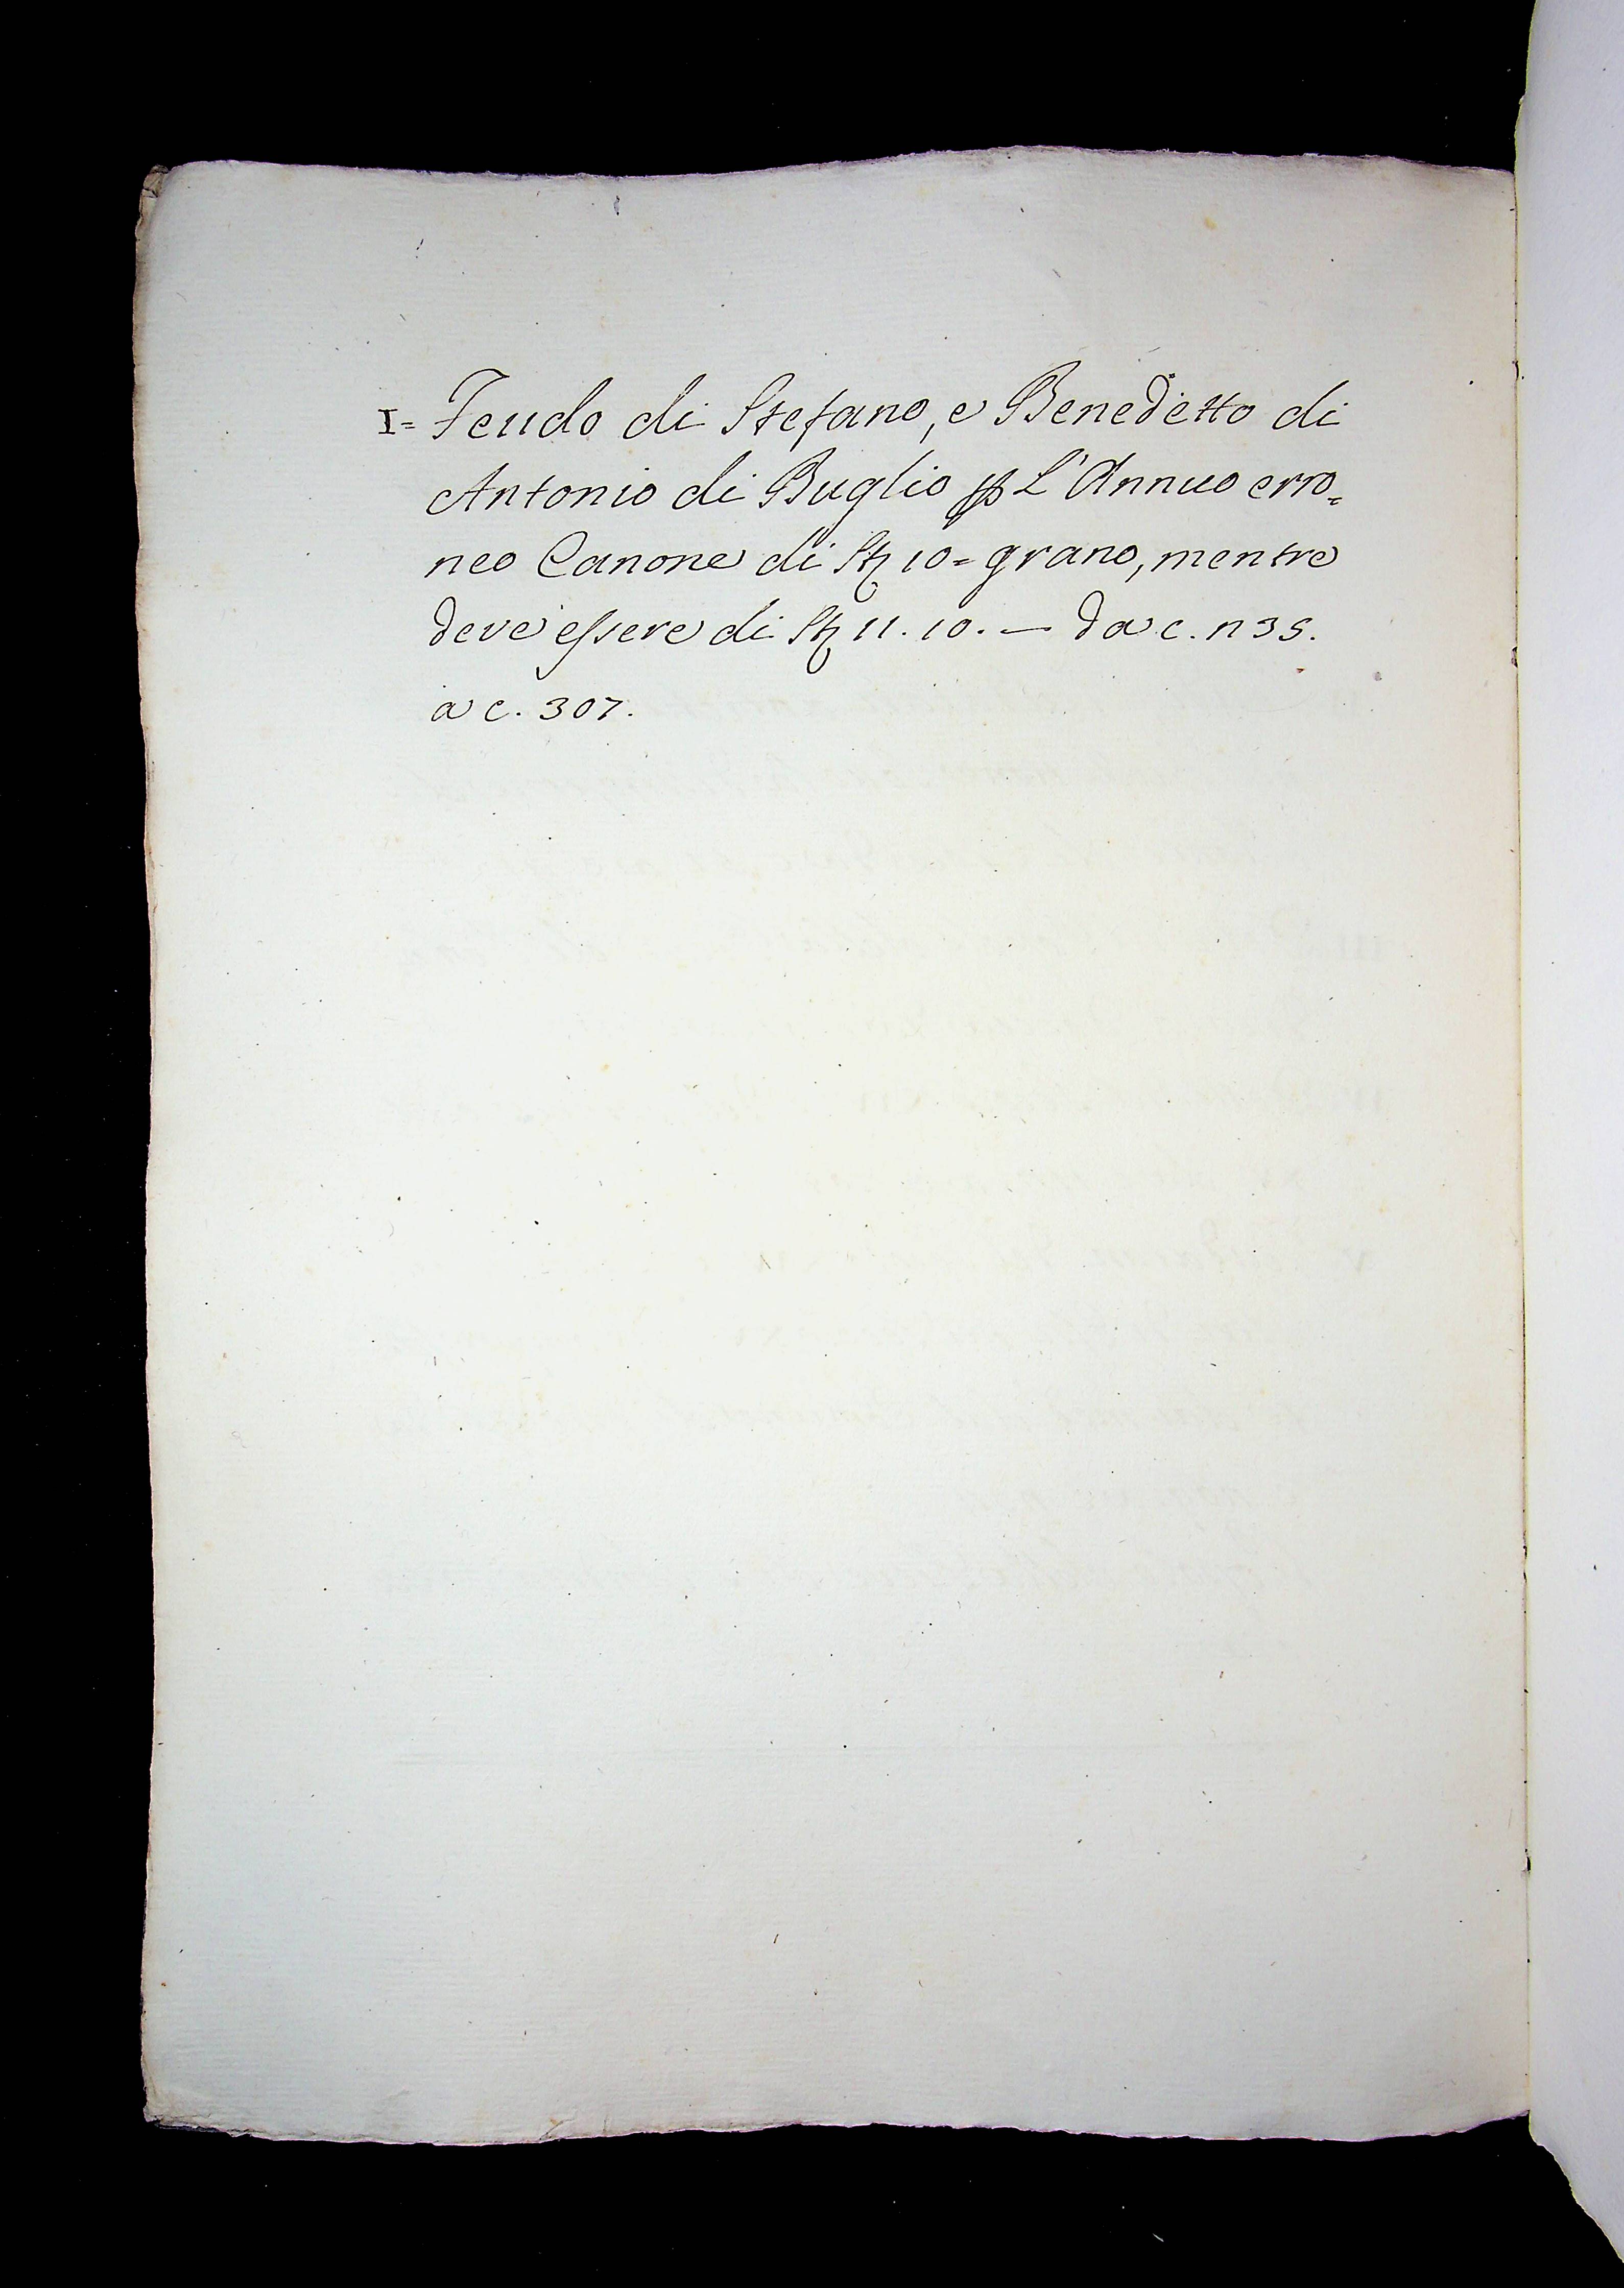 I= Feudo di Stefano, e Benedetto di
Antonio di Buglio ꝑ L'Annuo erro=
neo Canone di St 10= grano, mentre
deve essere di St 11. 10. — da c. n 35.
a c. 307.